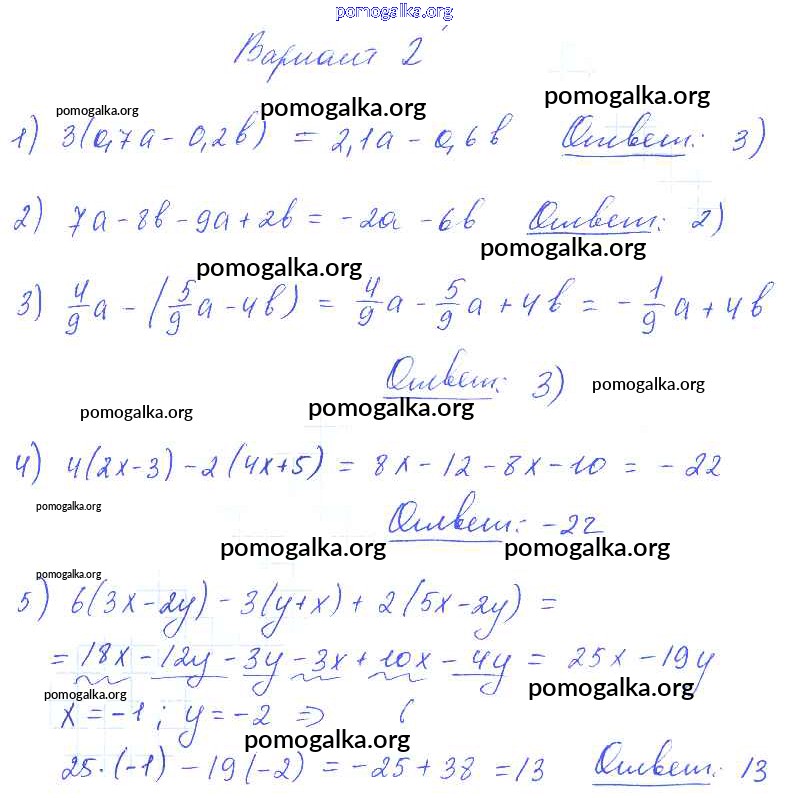 pomogalka.org
Вариант 2
pomogalka.org pomogalka.org pomogalka.org
1) 3(0,7а - 0,2в) = 2,1а - 0,6в Ответ: 3)
2) 7а - 8в - 9а + 2в = -2а - 6в Ответ: 2)
pomogalka.org pomogalka.org
3) 4/9 а - (5/9 а - 4в) = 4/9 а - 5/9 а + 4в = - 1/9 а + 4в
Ответ: 3) pomogalka.org
pomogalka.org pomogalka.org
4) 4(2x-3) - 2(4x+5) = 8x - 12 - 8x - 10 = -22
pomogalka.org Ответ: -22
pomogalka.org pomogalka.org
pomogalka.org
5) 6(3x-2y) - 3(y+x) + 2(5x-2y) =
= 18x - 12y - 3y - 3x + 10x - 4y = 25x - 19y
pomogalka.org pomogalka.org
x = -1 ; y = -2 ⇒ (
pomogalka.org
25·(-1) - 19(-2) = -25 + 38 = 13 Ответ: 13